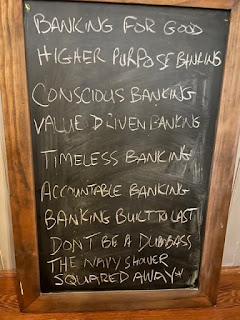 BANKING FOR GOOD
HIGHER PURPOSE BANKING
CONSCIOUS BANKING
VALUE DRIVEN BANKING
TIMELESS BANKING
ACCOUNTABLE BANKING
BANKING BUILT TO LAST
DON'T BE A DUMBASS
THE NAVY SHOWER
SQUARED AWAY